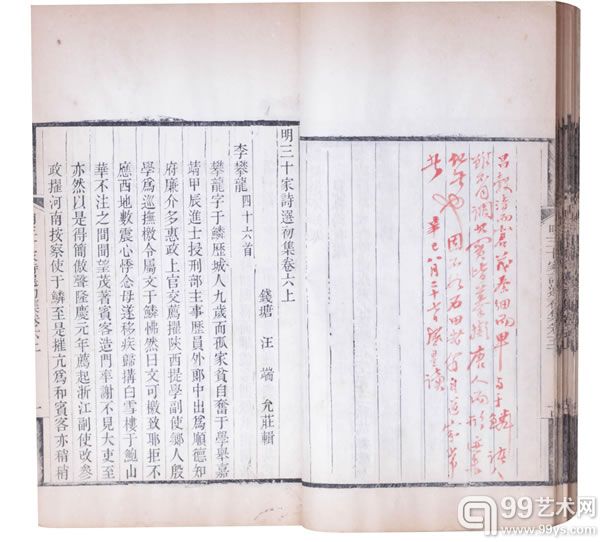 細而卑 于鱗 諸人
其實皆摹擬唐人而形
也
辛巳八月二十六日 讀
明三十家詩選初集卷六上
錢塘 汪 端 允莊輯
李攀龍 四十六首
攀龍字于鱗歷城人九歲而孤家貧自奮于學舉嘉
靖甲辰進士授刑部主事歷員外郎中出為順德知
府廉介多惠政上官交薦擢陝西提學副使鄉人殷
學為巡撫檄令屬文于鱗怫然曰文可檄致耶拒不
應西地數震心悸念母遂移疾歸搆白雪樓于鮑山
華不注之間聞望茂著賓客造門率謝不見大吏至
亦然以是得簡傲聲隆慶元年薦起浙江副使改參
政擢河南按察使于鱗至是摧亢為和賓客亦稍稍
99艺术网
www.99ys.com